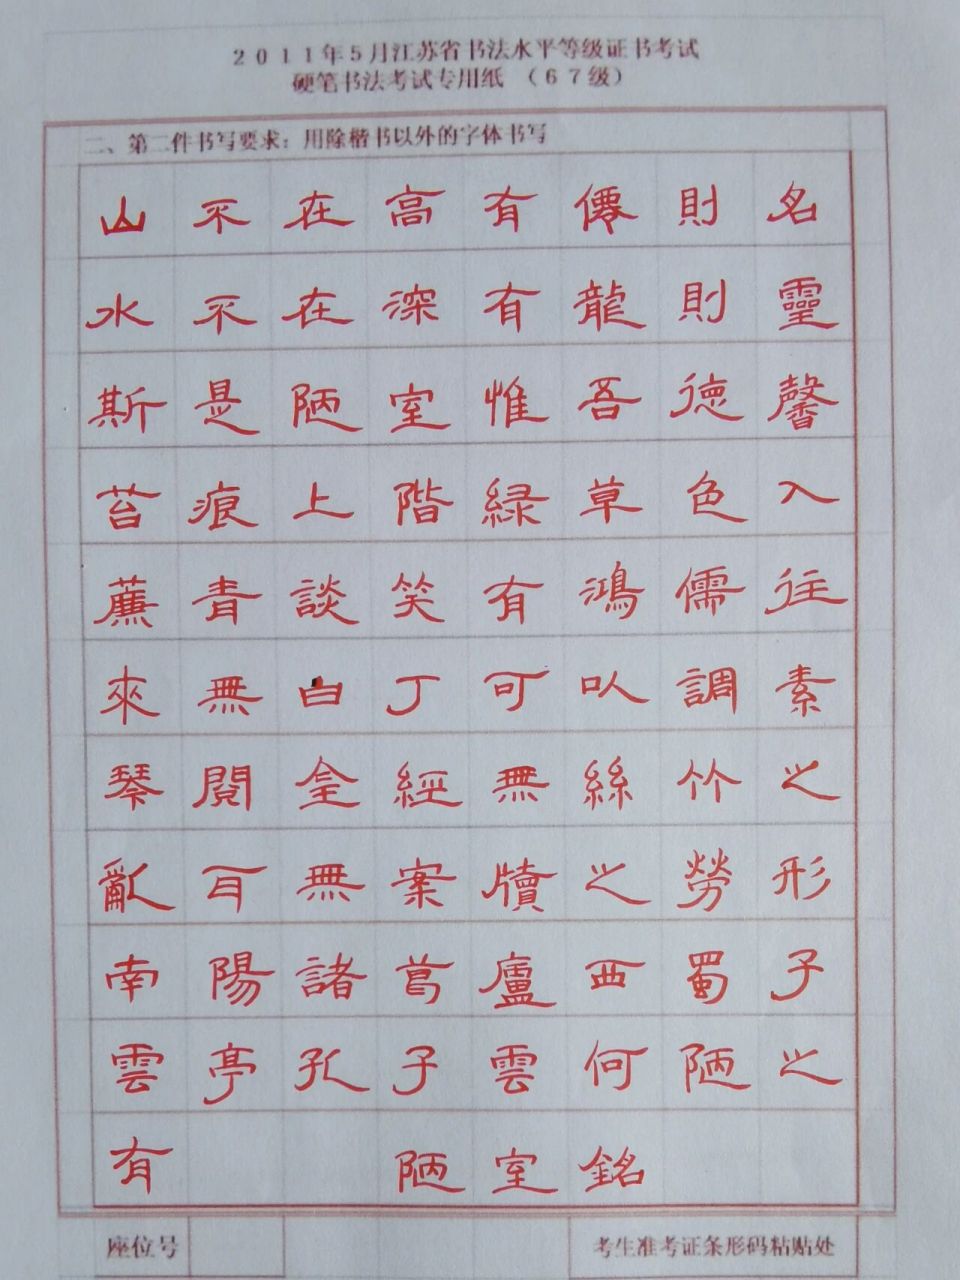 2011年5月江苏省书法水平等级证书考试
硬笔书法考试专用纸 （67级）
二、第二件书写要求：用除楷书以外的字体书写
山不在高有僊則名
水不在深有龍則靈
斯是陋室惟吾德馨
苔痕上階緑草色入
薕青談笑有鴻儒往
來無白丁可以調素
琴閱金經無絲竹之
亂耳無案牘之勞形
南陽諸葛廬西蜀子
雲亭孔子雲何陋之
有 陋室銘
座位号 考生准考证条形码粘贴处